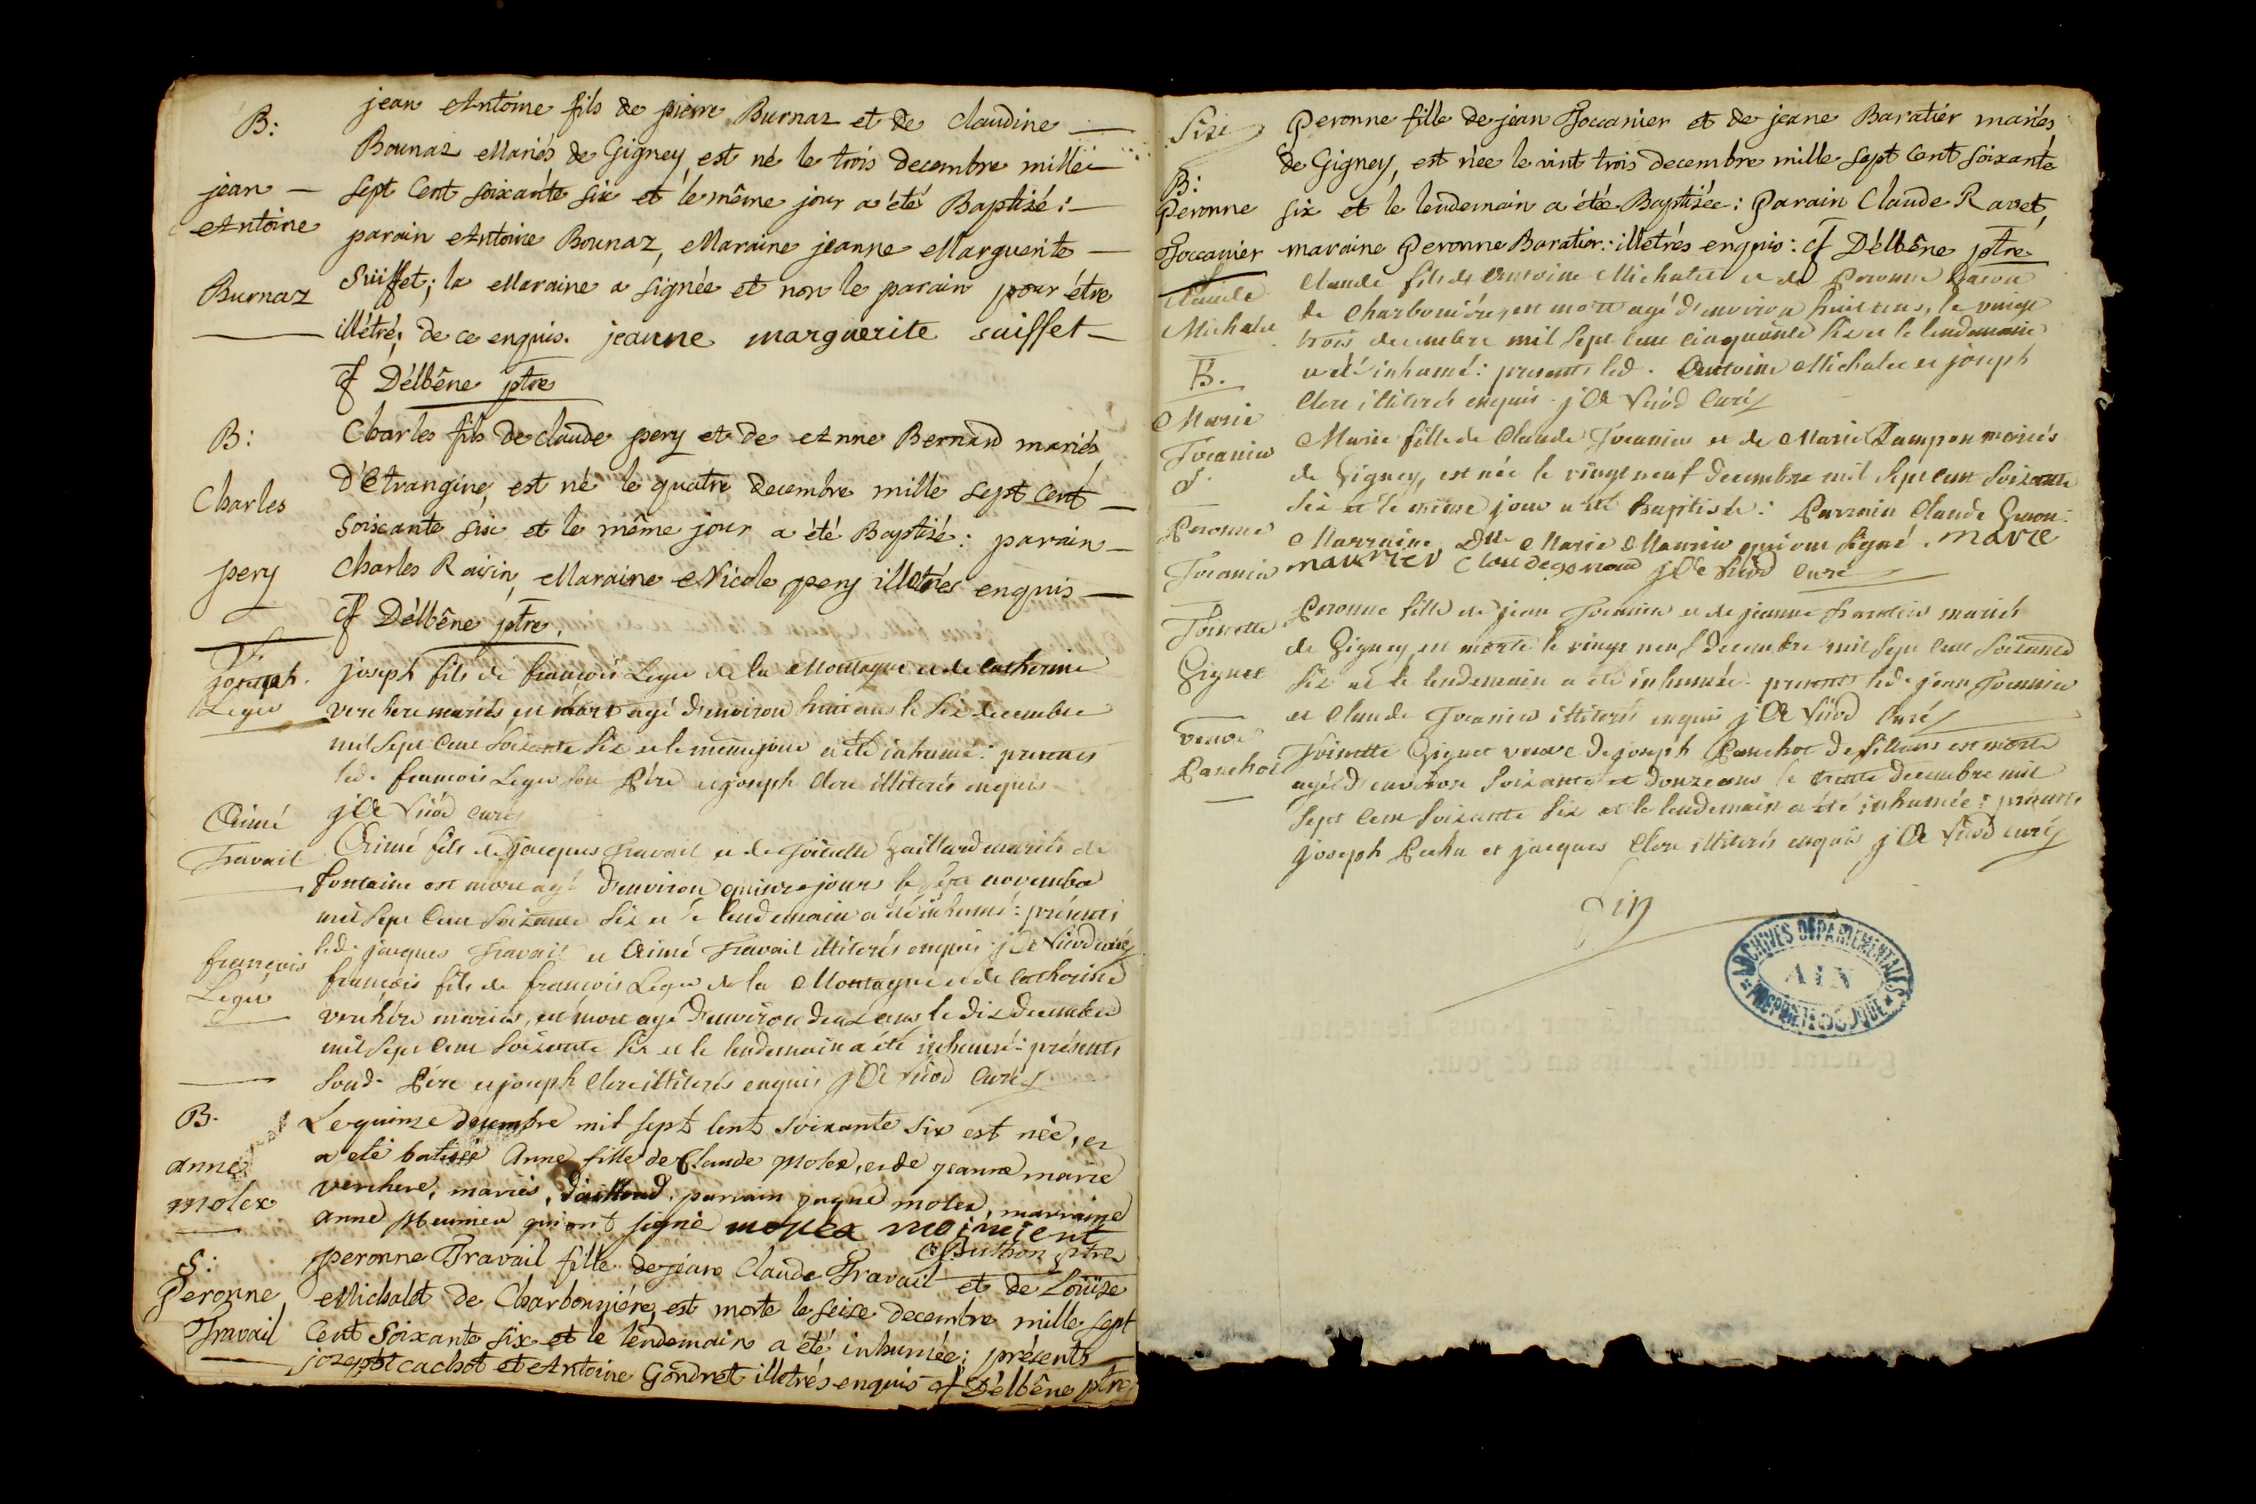 B:
jean Antoine fils de pierre Burnaz et de claudine
Bounaz Mariés de Gigney, est né le trois decembre mille
jean
sept Cent soixante six et le même jour a été Baptisé :
Antoine
parain Antoine Bounaz, Maraine jeanne Marguerite
Burnaz
Suiffet; la Maraine a signée et non le parain pour étre
illétré; de ce enquis. jeanne marguerite suiffet
f Délbêne ptre
B:
Charles fils de claude pery et de Anne Bernard mariés
d'Etrangine, est né le quatre decembre mille sept Cent
Charles
soixante six et le même jour a été Baptisé: parain
pery
Charles Raisin, Maraine Nicole pery illetrés enquis
f Délbêne ptre.
joseph
Leger
joseph fils de françois Leger de la Montagne et de Catherine
verchere mariés est mort agé d'environ huit ans le six decembre
mil sept Cent soixante six et le même jour a été inhumé: presents
led. françois Leger son Pére et joseph Clerc illiterés enquis
j Cl Viiod curé
Aimé
Travail
Aimé fils de jacques Travail et de Toinette Gaillard mariés de
fontaine est mort agé d'environ quinze jours le sept novembre
mil sept Cent soixante six et le lendemain a été inhumé: présents
led. jacques Travail et Aimé Travail illiterés enquis j Cl Viiod curé
françois
Leger
françois fils de françois Leger de la Montagne et de Catherine
verchére mariés, est mort agé d'environ deux ans le dix decembre
mil sept Cent soixante six et le lendemain a été inhumé: présents
sond. Pére et joseph Clerc illiterés enquis j Cl Viiod Curé
B.
Le quinze decembre mil sept cent soixante six est née, et
anne
a eté batisée Anne fille de Claude molex, et de jeanne marie
molex
verchere, mariés, parrain molex, marraine
anne Meunier qui ont signé molex
Buthon ptre
S:
peronne Travail fille de jean Claude Travail et de Loüise
Peronne
Michalét de Charbonniére, est morte le seize decembre mille sept
Travail
Cent soixante six et le lendemain a été inhumée; présents
joseph cachot et Antoine Gondret illetrés enquis f Délbêne ptre
B:
Peronne
Joccanier
Peronne fille de jean Joccanier et de jeane Baratier mariés
de Gigney, est née le vint trois decembre mille sept Cent soixante
six et le lendemain a étée Baptisée: Parain Claude Ravet,
maraine Peronne Baratier: illetrés enquis: f Délbêne ptre
Claude
Michalet
Claude fils de Antoine Michalet et de Peronne
de Charboniére, est mort agé d'environ huit ans, le vingt
trois decembre mil sept Cent cinquante six et le lendemain
a été inhumé: presents led. Antoine Michalet et joseph
Clerc illiterés enquis j Cl Viiod Curé
B.
Marie
Jocanier
Marie fille de Claude Jocanier et de Marie Rampon mariés
de Gigney, est née le vingt neuf decembre mil sept Cent soixante
six et le même jour a été Baptisée: Parrain Claude
Marraine Dlle Marie Maurier qui ont signé. marie
maurier j Cl Viiod curé
Peronne
Jocanier
Peronne fille de jean Jocanier et de jeanne Baratier mariés
de Gigney est morte le vingt neuf decembre mil sept Cent soixante
six et le lendemain a été inhumée: presents led. jean Jocanier
et Claude Jocanier illiterés enquis j Cl Viiod Curé
Toinette
Giguet
veuve
Panchot
Toinette Giguet veuve de joseph Panchot de fillieurs est morte
agée d'environ soixante et douze ans le trente decembre mil
sept Cent soixante six et le lendemain a été inhumée: présents
joseph et jacques Clerc illiterés enquis j Cl Viiod curé
fin
ARCHIVES DÉPARTEMENTALES
AIN